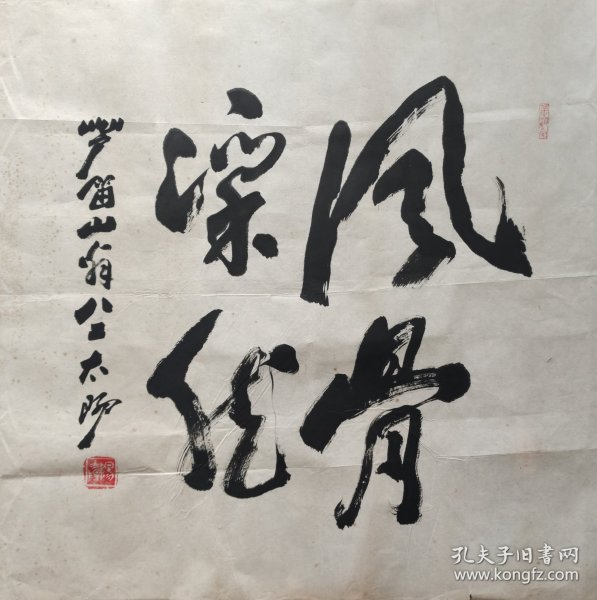 风骨
深
芦笛山翁八二太阳
孔夫子旧书网
www.kongfz.com